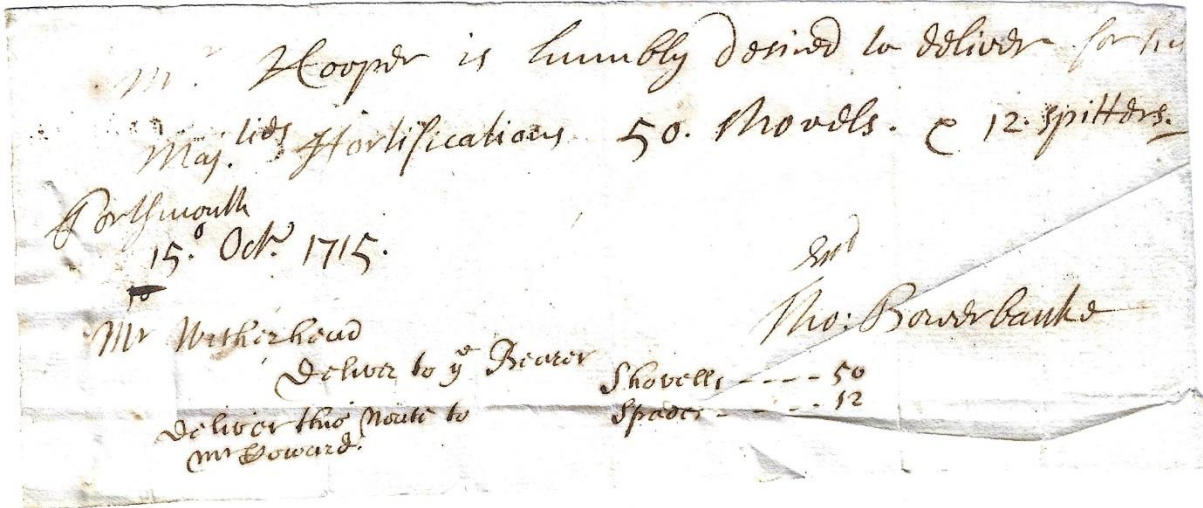 Mr. Hooper is humbly desired to deliver for his
Maj.ties Fortifications 50. Shovels. & 12. spitters.
Portsmouth
15.o Octr. 1715.
Tho: Bowerbanke
to
Mr Witherhead
Deliver to ye Bearer
Shovells - - - - 50
Spades - - - - - 12
Deliver this Noate to
Mr Howard.